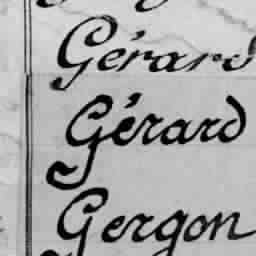 Gérard
Gérard
Gergon